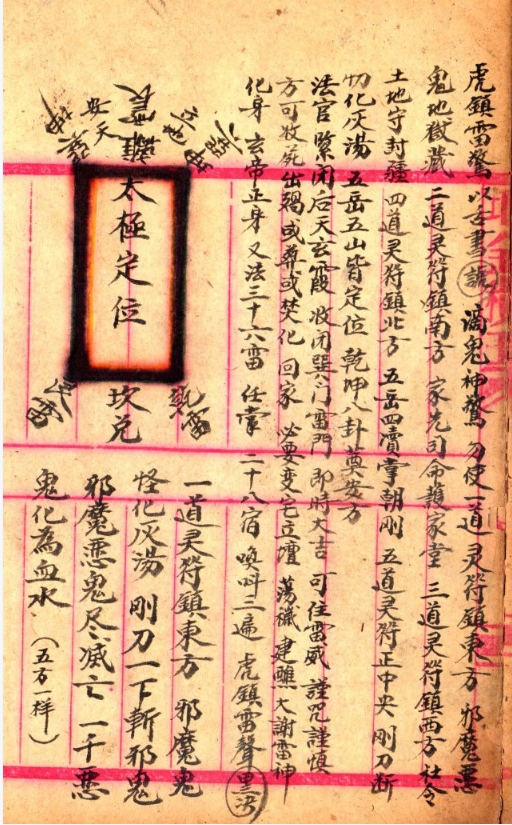 虎鎮雷驚 以古書諕 滿鬼神驚 勿使一道灵符鎮東方 邪魔恶
鬼地獄藏 二道灵符鎮南方 家先司命護家堂 三道灵符鎮西方 社令
土地守封疆 四道灵符鎮北方 五岳四瀆掌朝剛 五道灵符正中央 刚刀断
切化灰湯 五岳五山皆定位 乾坤八卦奠安方
法官緊闭后天玄霞 收闭巽门雷門 即時大吉 可住雷威 謹咒謹慎
方可收 出 或 或焚化 回家 必要变宅立壇 荡穢 建醮大謝雷神
化身 玄帝正身 又法三十六雷 任掌 二十八宿 喚叫三遍 虎鎮雷聲
太極定位
坎兑
一道灵符鎮東方 邪魔鬼
怪化灰湯 刚刀一下斬邪鬼
邪魔恶鬼尽滅亡 一千恶
鬼化為血水 （五方一样）